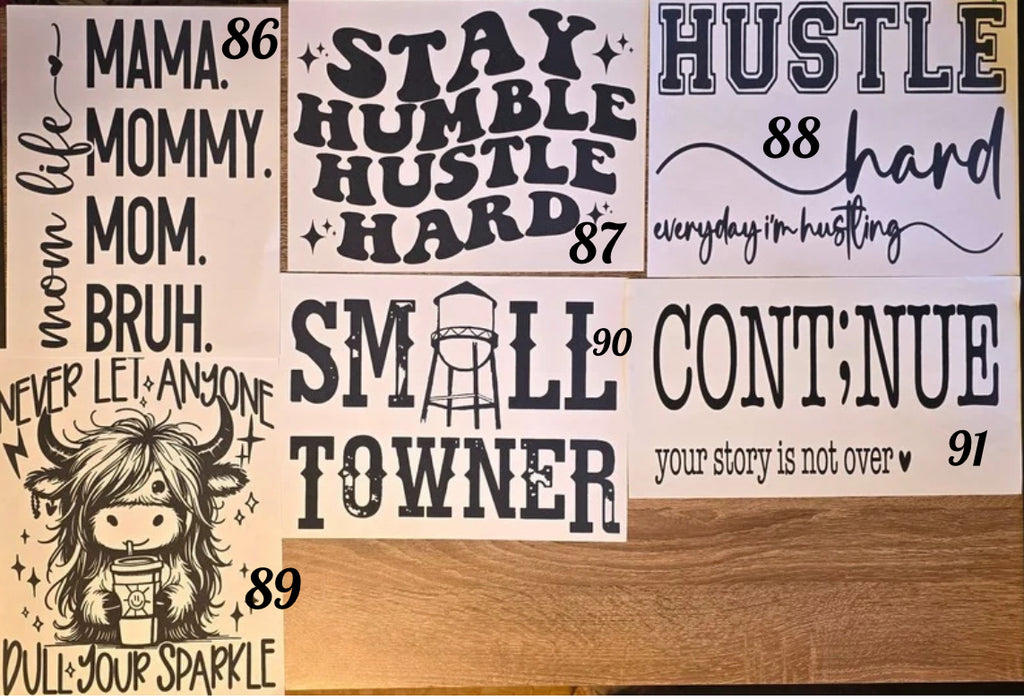 86
mom life
MAMA.
MOMMY.
MOM.
BRUH.
STAY
HUMBLE
HUSTLE
HARD
87
HUSTLE
88
hard
everyday i'm hustling
NEVER LET ANYONE
DULL YOUR SPARKLE
89
SMALL
TOWNER
90
CONT;NUE
your story is not over
91